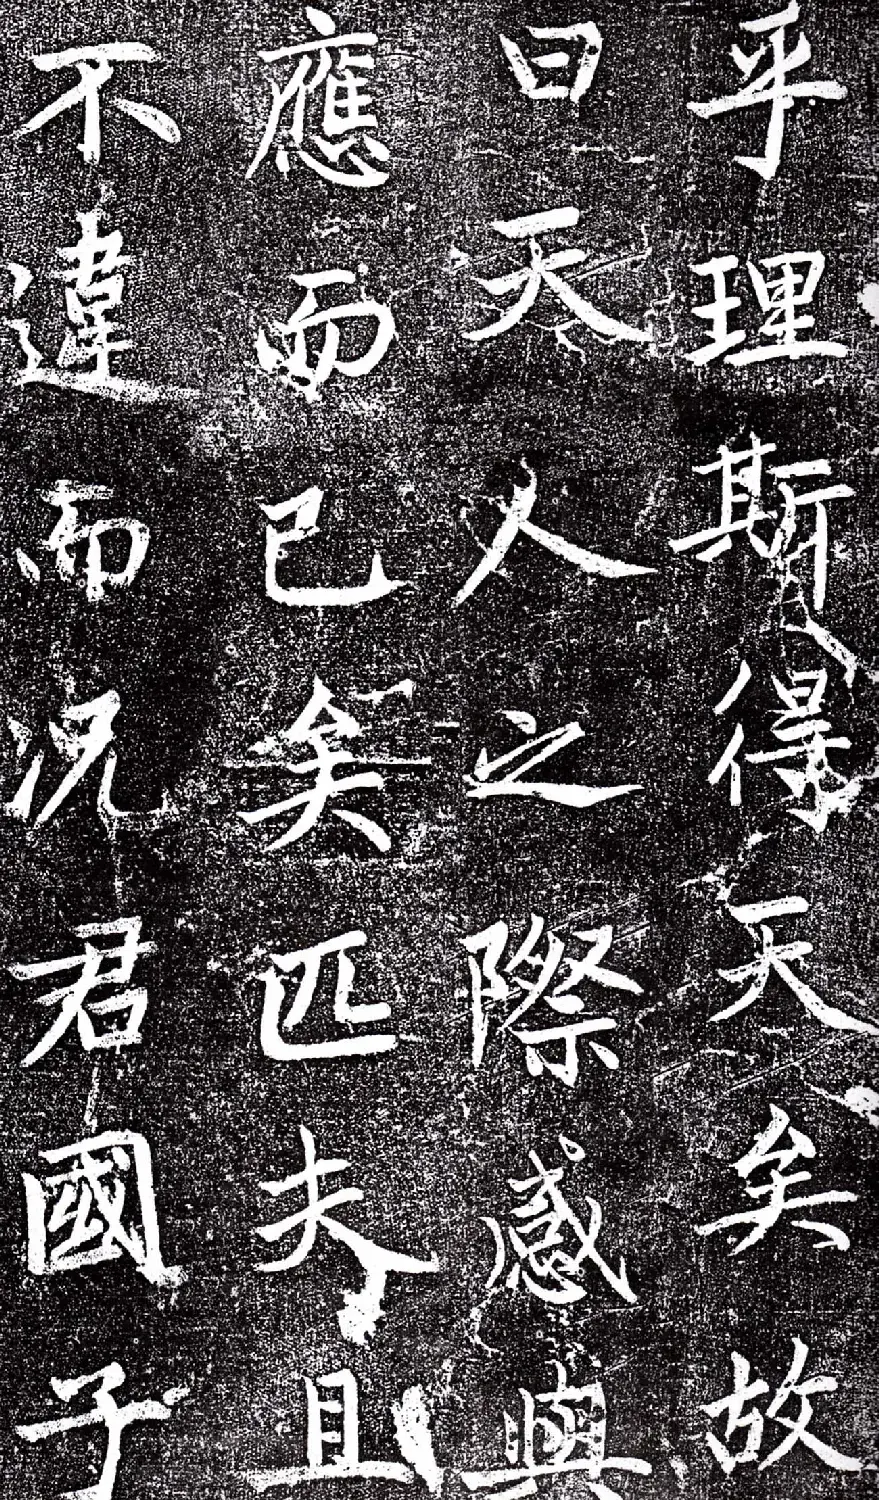 乎理斯得天矣故
曰天人之際感與
應而已矣匹夫且
不違而況君國子